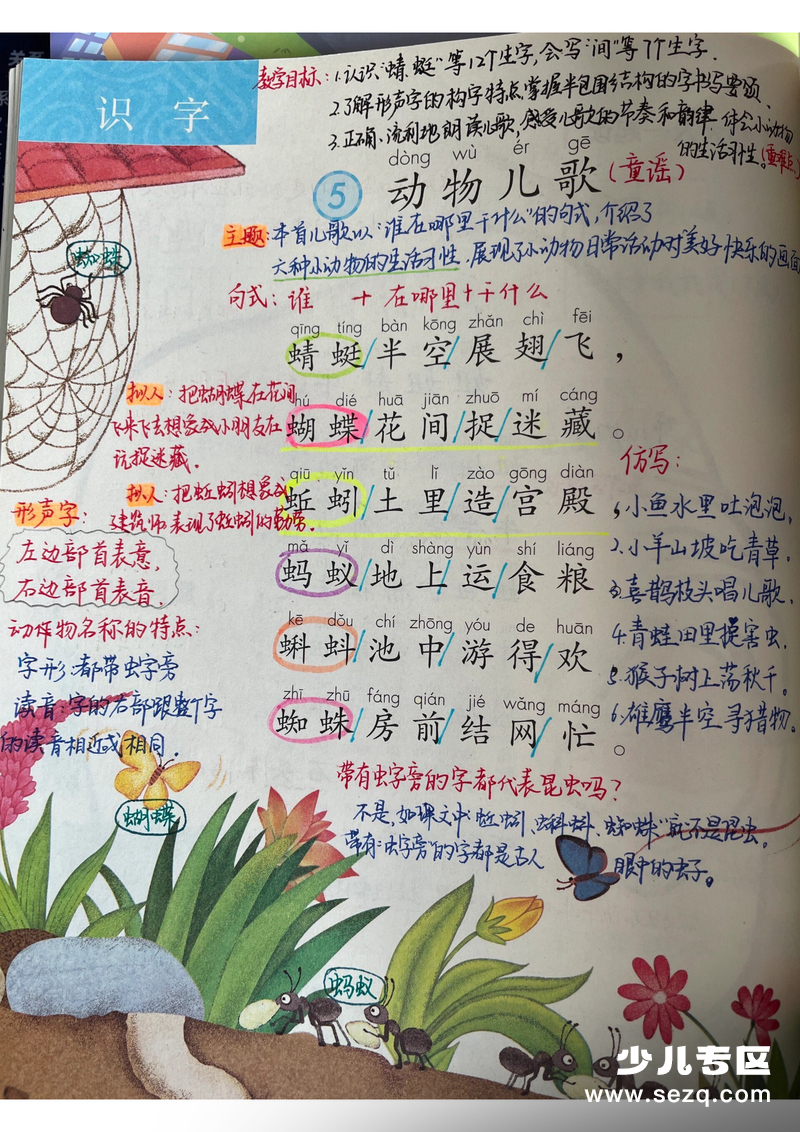 识 字
教学目标：1.认识“蜻、蜓”等12个生字，会写“间”等7个生字．
2.了解形声字的构字特点，掌握半包围结构的字书写要领．
3.正确、流利地朗读儿歌，感受儿歌的节奏和韵律．体会小动物
的生活习性。(重难点)
dòng wù ér gē
5 动物儿歌（童谣）
主题：本首儿歌以“谁在哪里干什么”的句式，介绍了
六种小动物的生活习性．展现了小动物日常活动时美好快乐的画面
句式：谁 + 在哪里+干什么
蜘蛛
qīng tíng bàn kōng zhǎn chì fēi
蜻蜓/半空/展翅/飞，
拟人：把蝴蝶在花间
飞来飞去想象成小朋友在
玩捉迷藏．
hú dié huā jiān zhuō mí cáng
蝴蝶/花间/捉/迷藏。
拟人：把蚯蚓想象成
建筑师表现了蚯蚓的勤劳．
qiū yǐn tǔ lǐ zào gōng diàn
蚯蚓/土里/造/宫殿，
mǎ yǐ dì shàng yùn shí liáng
蚂蚁/地上/运/食粮。
kē dǒu chí zhōng yóu de huān
蝌蚪/池中/游得/欢，
zhī zhū fáng qián jié wǎng máng
蜘蛛/房前/结网/忙。
形声字：
左边部首表意，
右边部首表音．
动作物名称的特点：
字形：都带虫字旁
读音：字的右部跟整个字
的读音相近或相同．
仿写：
1.小鱼水里吐泡泡，
2.小羊山坡吃青草．
3.喜鹊枝头唱儿歌，
4.青蛙田里捉害虫．
5.猴子树上荡秋千。
6.雄鹰半空寻猎物。
带有虫字旁的字都代表昆虫吗？
不是，如课文中“蚯蚓、蝌蚪、蜘蛛”就不是昆虫．
带有“虫字旁”的字都是古人 眼中的虫子。
蝴蝶
蚂蚁
少儿专区
www.sezq.com